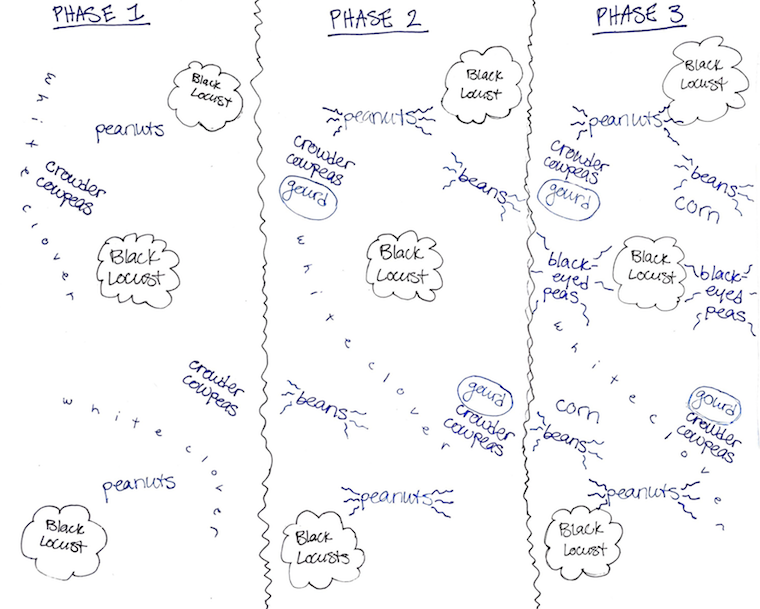 PHASE 1
Black
Locust
white clover
peanuts
crowder
cowpeas
Black
Locust
crowder
cowpeas
white clover
peanuts
Black
Locust
PHASE 2
Black
Locust
peanuts
crowder
cowpeas
gourd
beans
Black
Locust
white clover
gourd
crowder
cowpeas
beans
peanuts
Black
Locusts
PHASE 3
Black
Locust
peanuts
crowder
cowpeas
gourd
beans
corn
black-
eyed
peas
Black
Locust
black-
eyed
peas
white clover
gourd
crowder
cowpeas
corn
beans
peanuts
Black
Locust